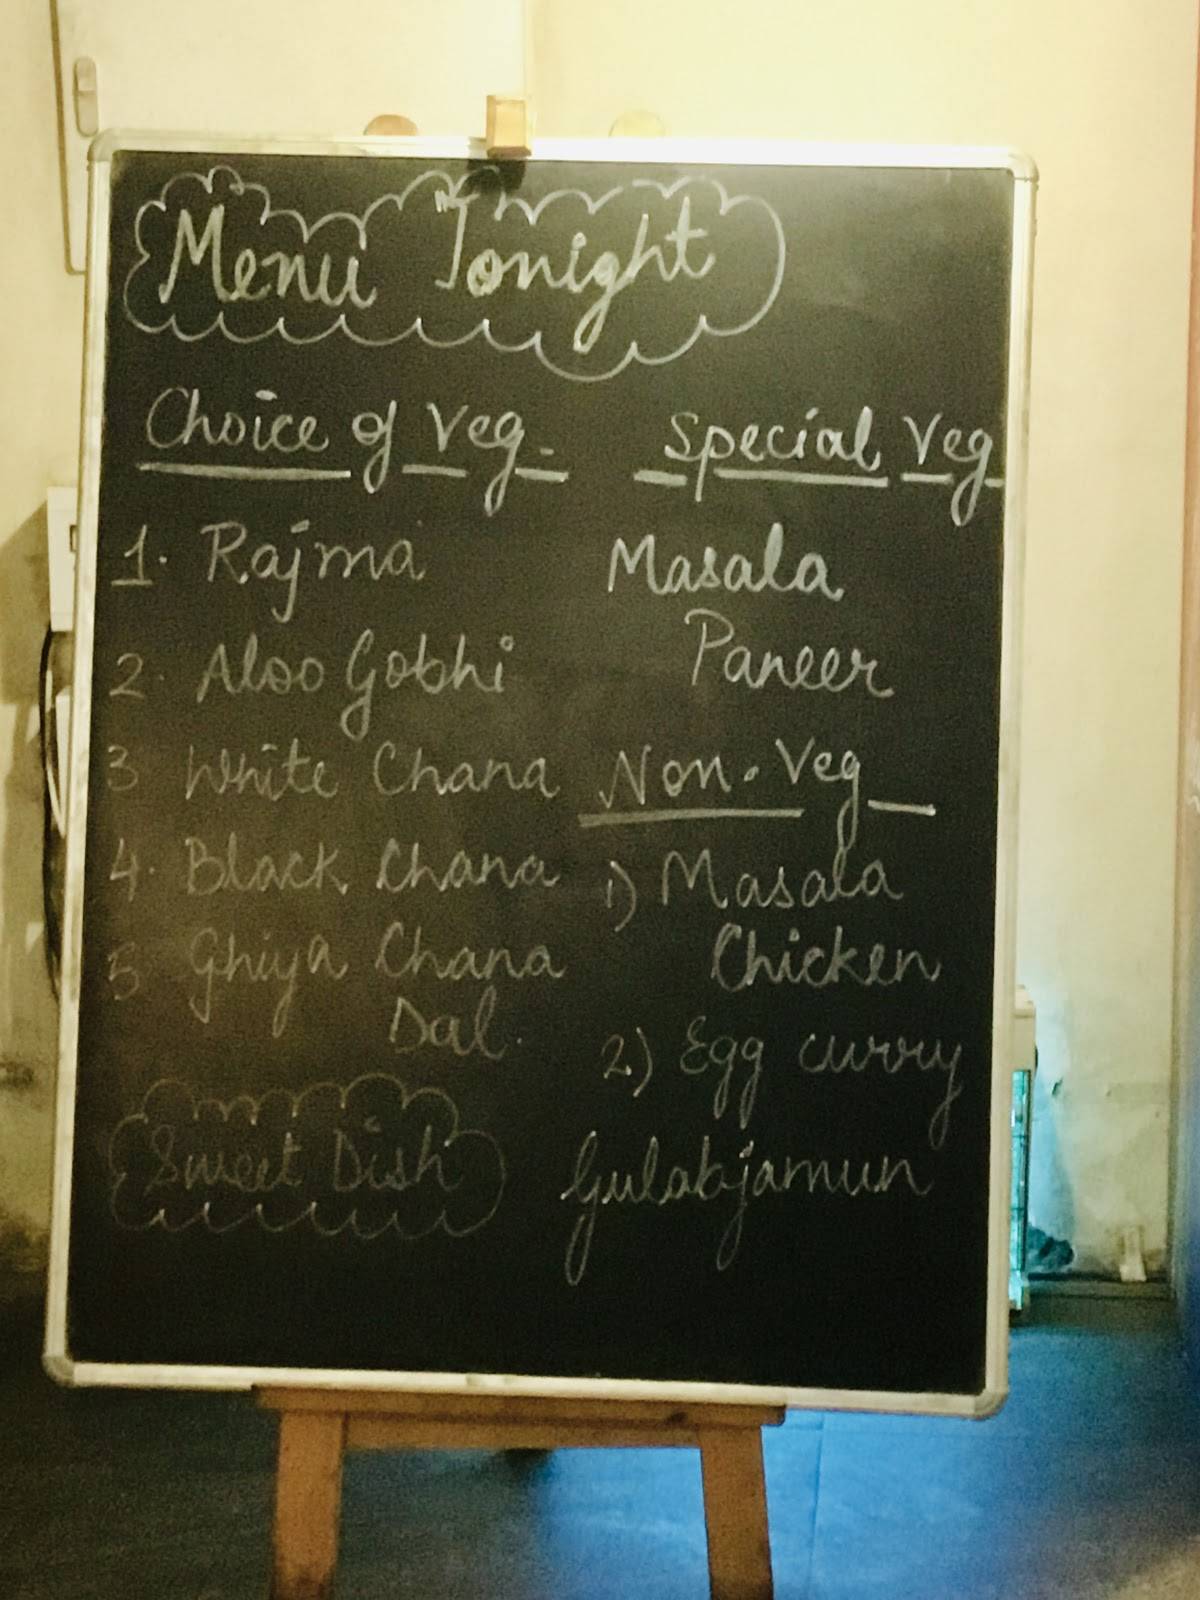 Menu Tonight
Choice of Veg.
1. Rajma
2. Aloo Gobhi
3 White Chana
4. Black Chana
5 Ghiya Chana
Dal.
Special Veg
Masala
Paneer
Non-Veg
1) Masala
Chicken
2) Egg curry
Sweet Dish
Gulabjamun